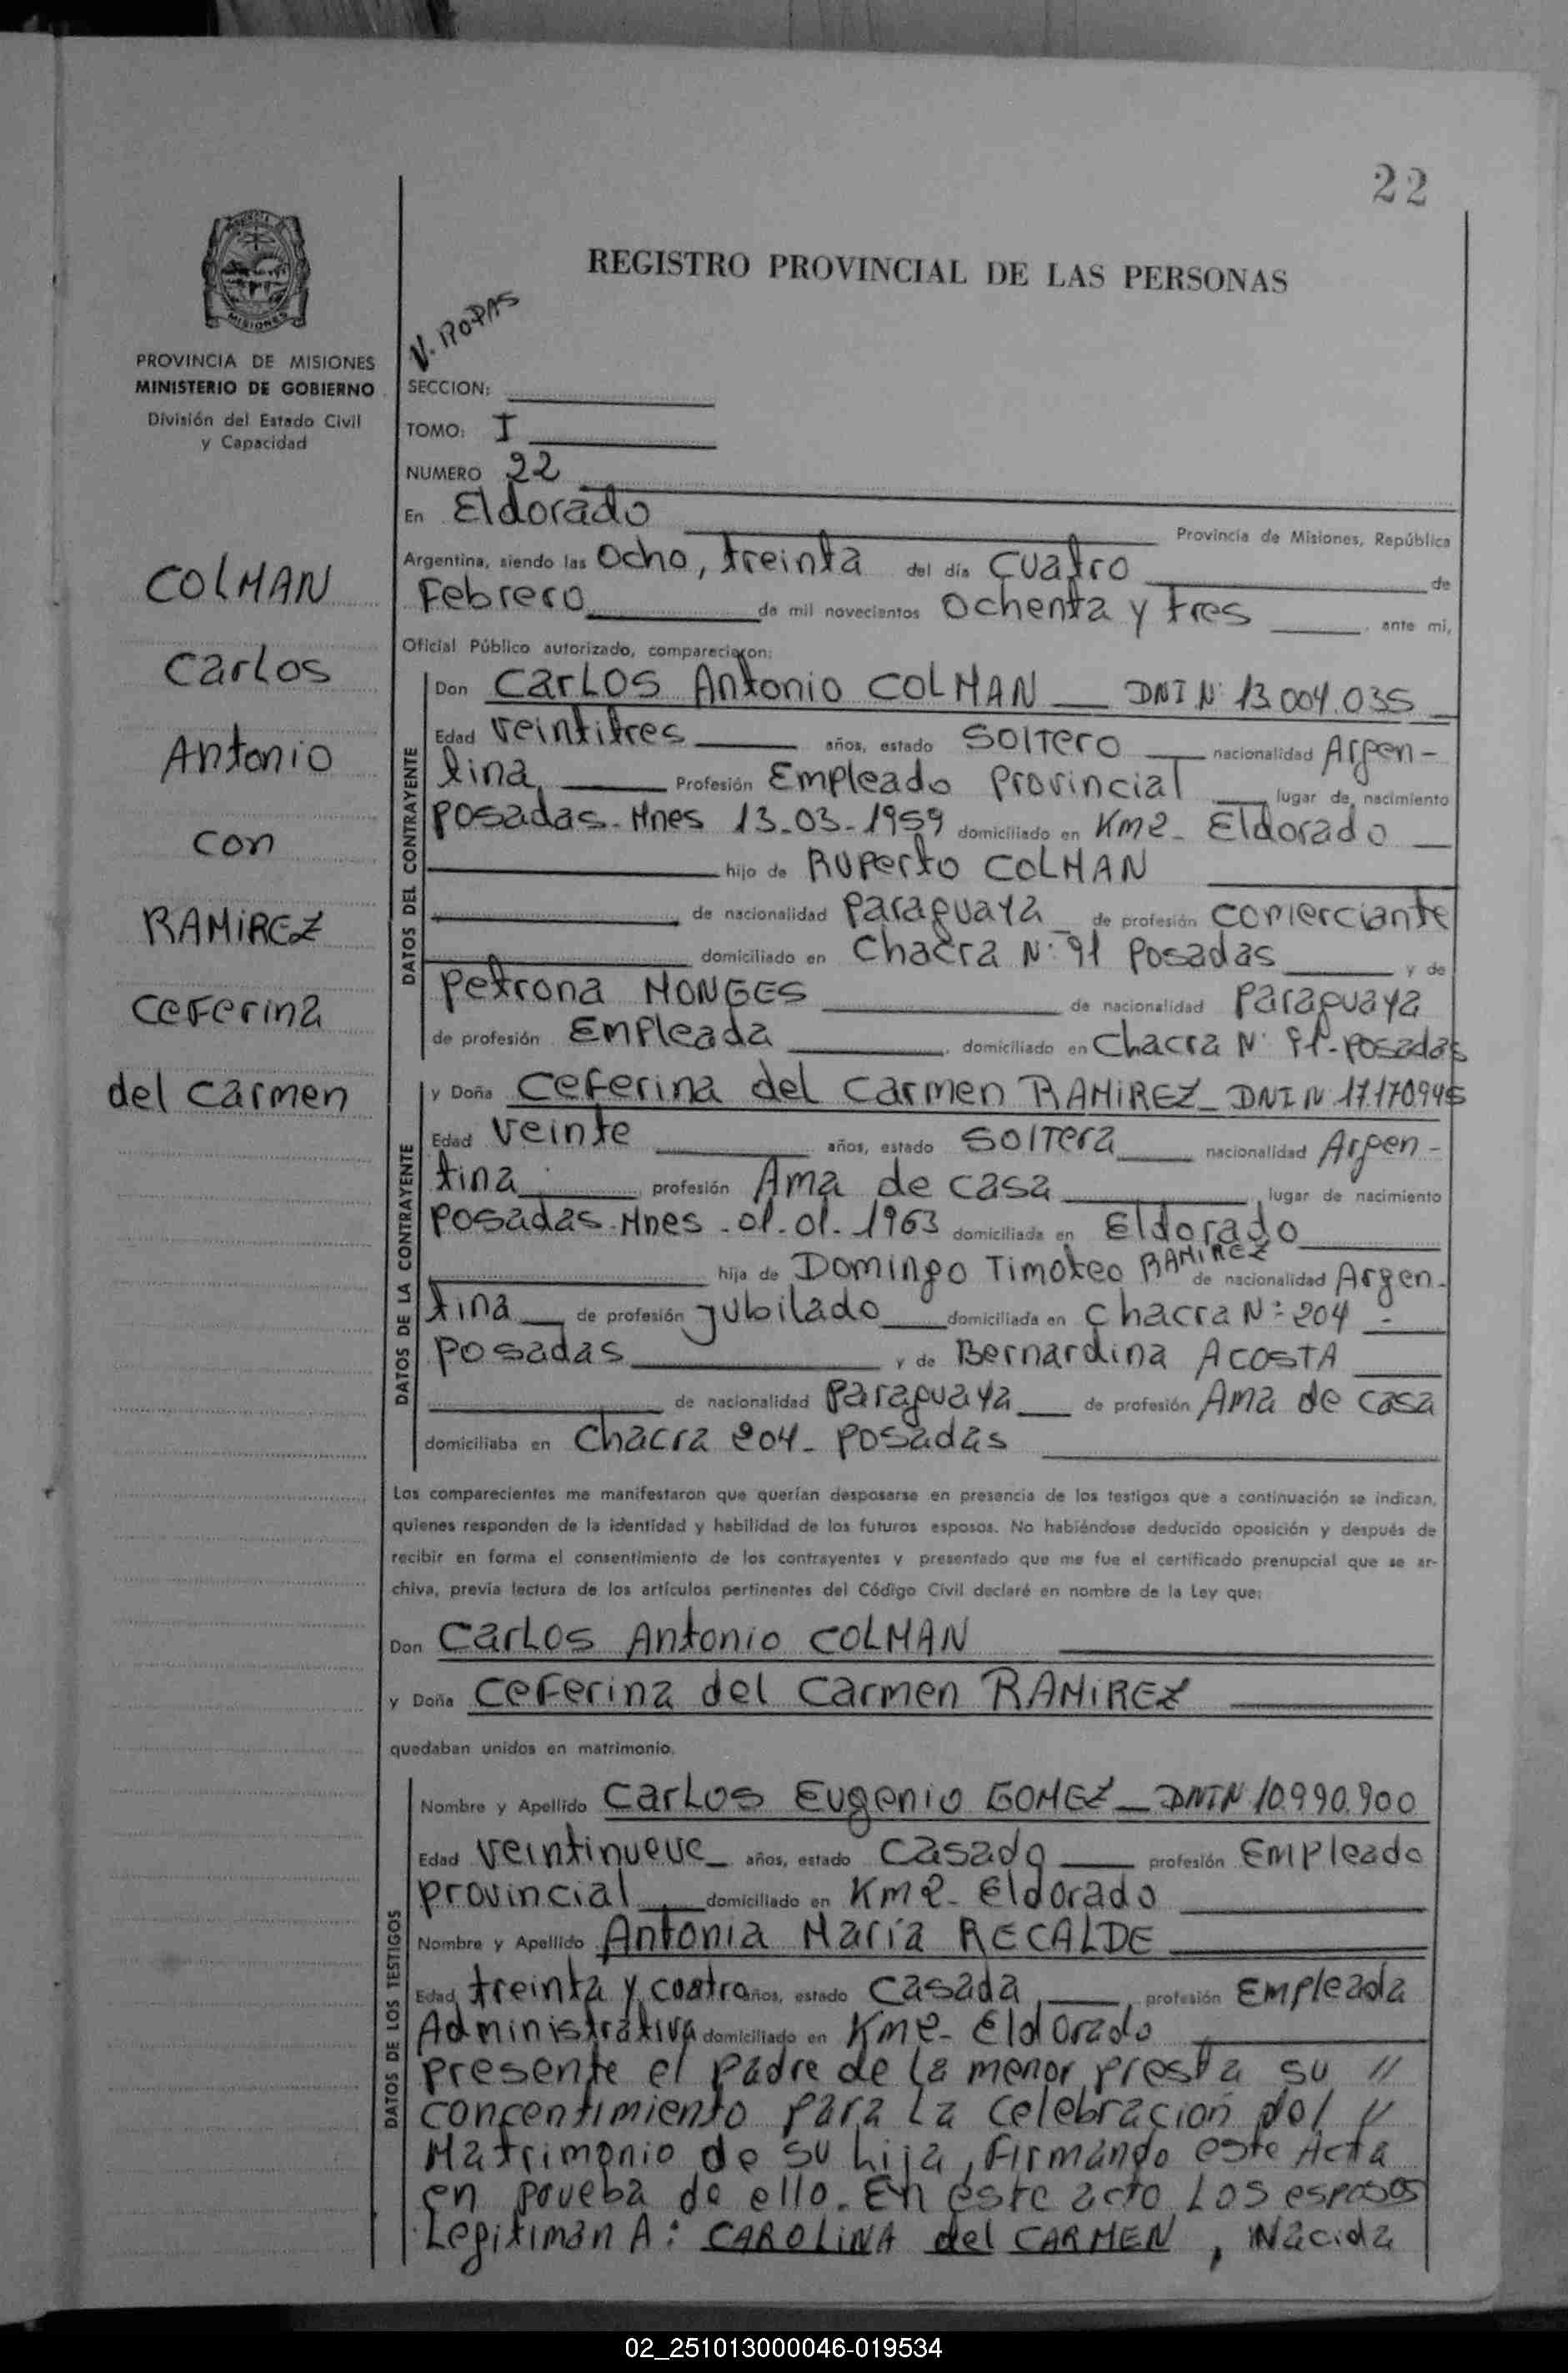 22
REGISTRO PROVINCIAL DE LAS PERSONAS
MISIONES
PROVINCIA DE MISIONES
MINISTERIO DE GOBIERNO
División del Estado Civil
y Capacidad
COLMAN
Carlos
Antonio
con
RAMIREZ
Ceferina
del Carmen
V. RODAS
SECCION:
TOMO: I
NUMERO 22
En Eldorado Provincia de Misiones, República
Argentina, siendo las Ocho, treinta del día Cuatro de
Febrero de mil novecientos Ochenta y tres, ante mi,
Oficial Público autorizado, comparecieron:
DATOS DEL CONTRAYENTE
Don Carlos Antonio COLMAN DNI Nº 13.004.035
Edad Veintitres años, estado Soltero nacionalidad Argen-
tina, Profesión Empleado Provincial lugar de nacimiento
Posadas-Mnes 13-03-1959 domiciliado en Km2- Eldorado
hijo de Ruperto COLMAN
de nacionalidad Paraguaya de profesión Comerciante
domiciliado en Chacra Nº 91 Posadas y de
Petrona MONGES de nacionalidad Paraguaya
de profesión Empleada, domiciliado en Chacra Nº 91-Posadas
DATOS DE LA CONTRAYENTE
y Doña Ceferina del Carmen RAMIREZ- DNI N 17.170.945
Edad Veinte años, estado Soltera nacionalidad Argen-
tina profesión Ama de casa, lugar de nacimiento
Posadas-Mnes-01-01-1963 domiciliada en Eldorado
hija de Domingo Timoteo RAMIREZ de nacionalidad Argen-
tina de profesión Jubilado domiciliada en Chacra Nº 204-
Posadas y de Bernardina ACOSTA
de nacionalidad Paraguaya de profesión Ama de casa
domiciliaba en Chacra 204- Posadas
Los comparecientes me manifestaron que querían desposarse en presencia de los testigos que a continuación se indican,
quienes responden de la identidad y habilidad de los futuros esposos. No habiéndose deducido oposición y después de
recibir en forma el consentimiento de los contrayentes y presentado que me fue el certificado prenupcial que se ar-
chiva, previa lectura de los artículos pertinentes del Código Civil declaré en nombre de la Ley que:
Don Carlos Antonio COLMAN
y Doña Ceferina del Carmen RAMIREZ
quedaban unidos en matrimonio.
DATOS DE LOS TESTIGOS
Nombre y Apellido Carlos Eugenio GOMEZ- DNI N 10.990.900
Edad Veintinueve años, estado Casado profesión Empleado
provincial domiciliado en Km2- Eldorado
Nombre y Apellido Antonia María RECALDE
Edad treinta y cuatro años, estado Casada, profesión Empleada
Administrativa domiciliado en Km2- Eldorado
presente el padre de la menor presta su //
concentimiento para la celebración del //
Matrimonio de su hija, firmando este Acta
en prueba de ello. En este acto Los esposos
Legitiman A: CAROLINA del CARMEN, Nacida
02_251013000046-019534